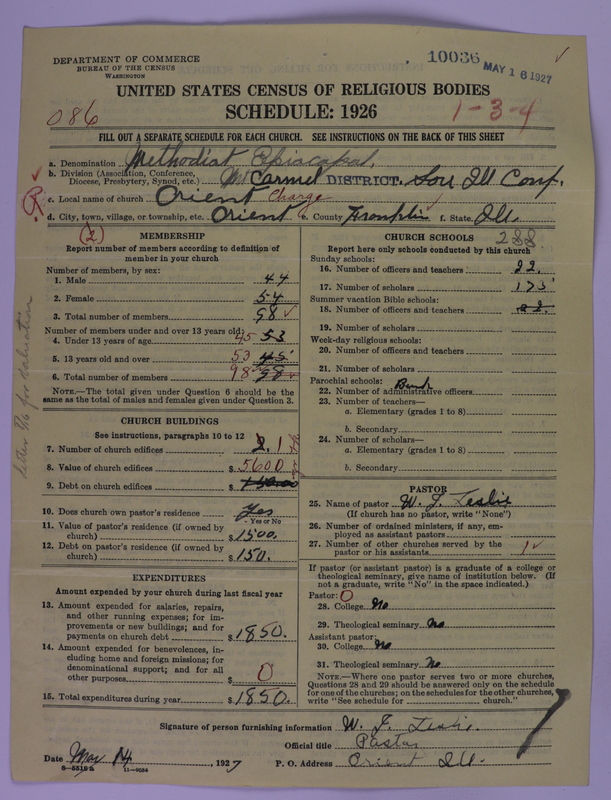 DEPARTMENT OF COMMERCE
BUREAU OF THE CENSUS
WASHINGTON
10036 MAY 16 1927
UNITED STATES CENSUS OF RELIGIOUS BODIES
SCHEDULE: 1926
086 1-3-4
FILL OUT A SEPARATE SCHEDULE FOR EACH CHURCH. SEE INSTRUCTIONS ON THE BACK OF THIS SHEET
a. Denomination Methodist Episcopal
b. Division (Association, Conference, Diocese, Presbytery, Synod, etc.) Mt Carmel DISTRICT. Sou Ill Conf.
c. Local name of church Orient Charge
d. City, town, village, or township, etc. Orient e. County Franklin f. State Ill.
(2)
MEMBERSHIP
Report number of members according to definition of member in your church
Number of members, by sex:
1. Male 44
2. Female 54
3. Total number of members 98
Number of members under and over 13 years old:
4. Under 13 years of age 45 53
5. 13 years old and over 53 45
6. Total number of members 98 98
NOTE.—The total given under Question 6 should be the same as the total of males and females given under Question 3.
CHURCH BUILDINGS
See instructions, paragraphs 10 to 12
7. Number of church edifices 2. 1
8. Value of church edifices $ 5600
9. Debt on church edifices $
10. Does church own pastor's residence Yes
Yes or No
11. Value of pastor's residence (if owned by church) $ 1500.
12. Debt on pastor's residence (if owned by church) $ 150.
EXPENDITURES
Amount expended by your church during last fiscal year
13. Amount expended for salaries, repairs, and other running expenses; for improvements or new buildings; and for payments on church debt $ 1850.
14. Amount expended for benevolences, including home and foreign missions; for denominational support; and for all other purposes $ 0
15. Total expenditures during year $ 1850.
CHURCH SCHOOLS 288
Report here only schools conducted by this church
Sunday schools:
16. Number of officers and teachers 22.
17. Number of scholars 175
Summer vacation Bible schools:
18. Number of officers and teachers 22.
19. Number of scholars
Week-day religious schools:
20. Number of officers and teachers
21. Number of scholars
Parochial schools:
22. Number of administrative officers
23. Number of teachers—
a. Elementary (grades 1 to 8)
b. Secondary
24. Number of scholars—
a. Elementary (grades 1 to 8)
b. Secondary
PASTOR
25. Name of pastor W. J. Leslie
(If church has no pastor, write "None")
26. Number of ordained ministers, if any, employed as assistant pastors
27. Number of other churches served by the pastor or his assistants 1
If pastor (or assistant pastor) is a graduate of a college or theological seminary, give name of institution below. (If not a graduate, write "No" in the space indicated.)
Pastor: 0
28. College No
29. Theological seminary No
Assistant pastor:
30. College No
31. Theological seminary No
NOTE.—Where one pastor serves two or more churches, Questions 28 and 29 should be answered only on the schedule for one of the churches; on the schedules for the other churches, write "See schedule for church."
Signature of person furnishing information W. J. Leslie.
Official title Pastor
Date May 14, 1927 P. O. Address Orient Ill.
8-5519a 11-9684